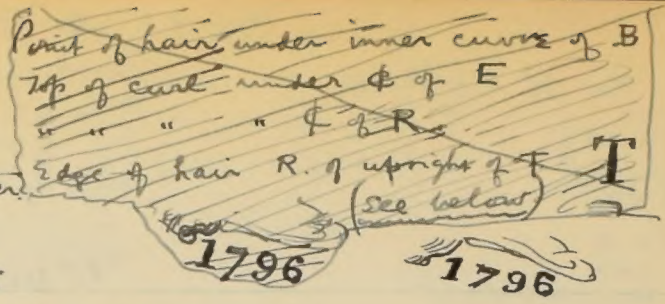 Point of hair under inner curve of B
Top of curl under ₵ of E
" " " " ₵ of R
Edge of hair R. of upright of T T
(see below)
1796 1796